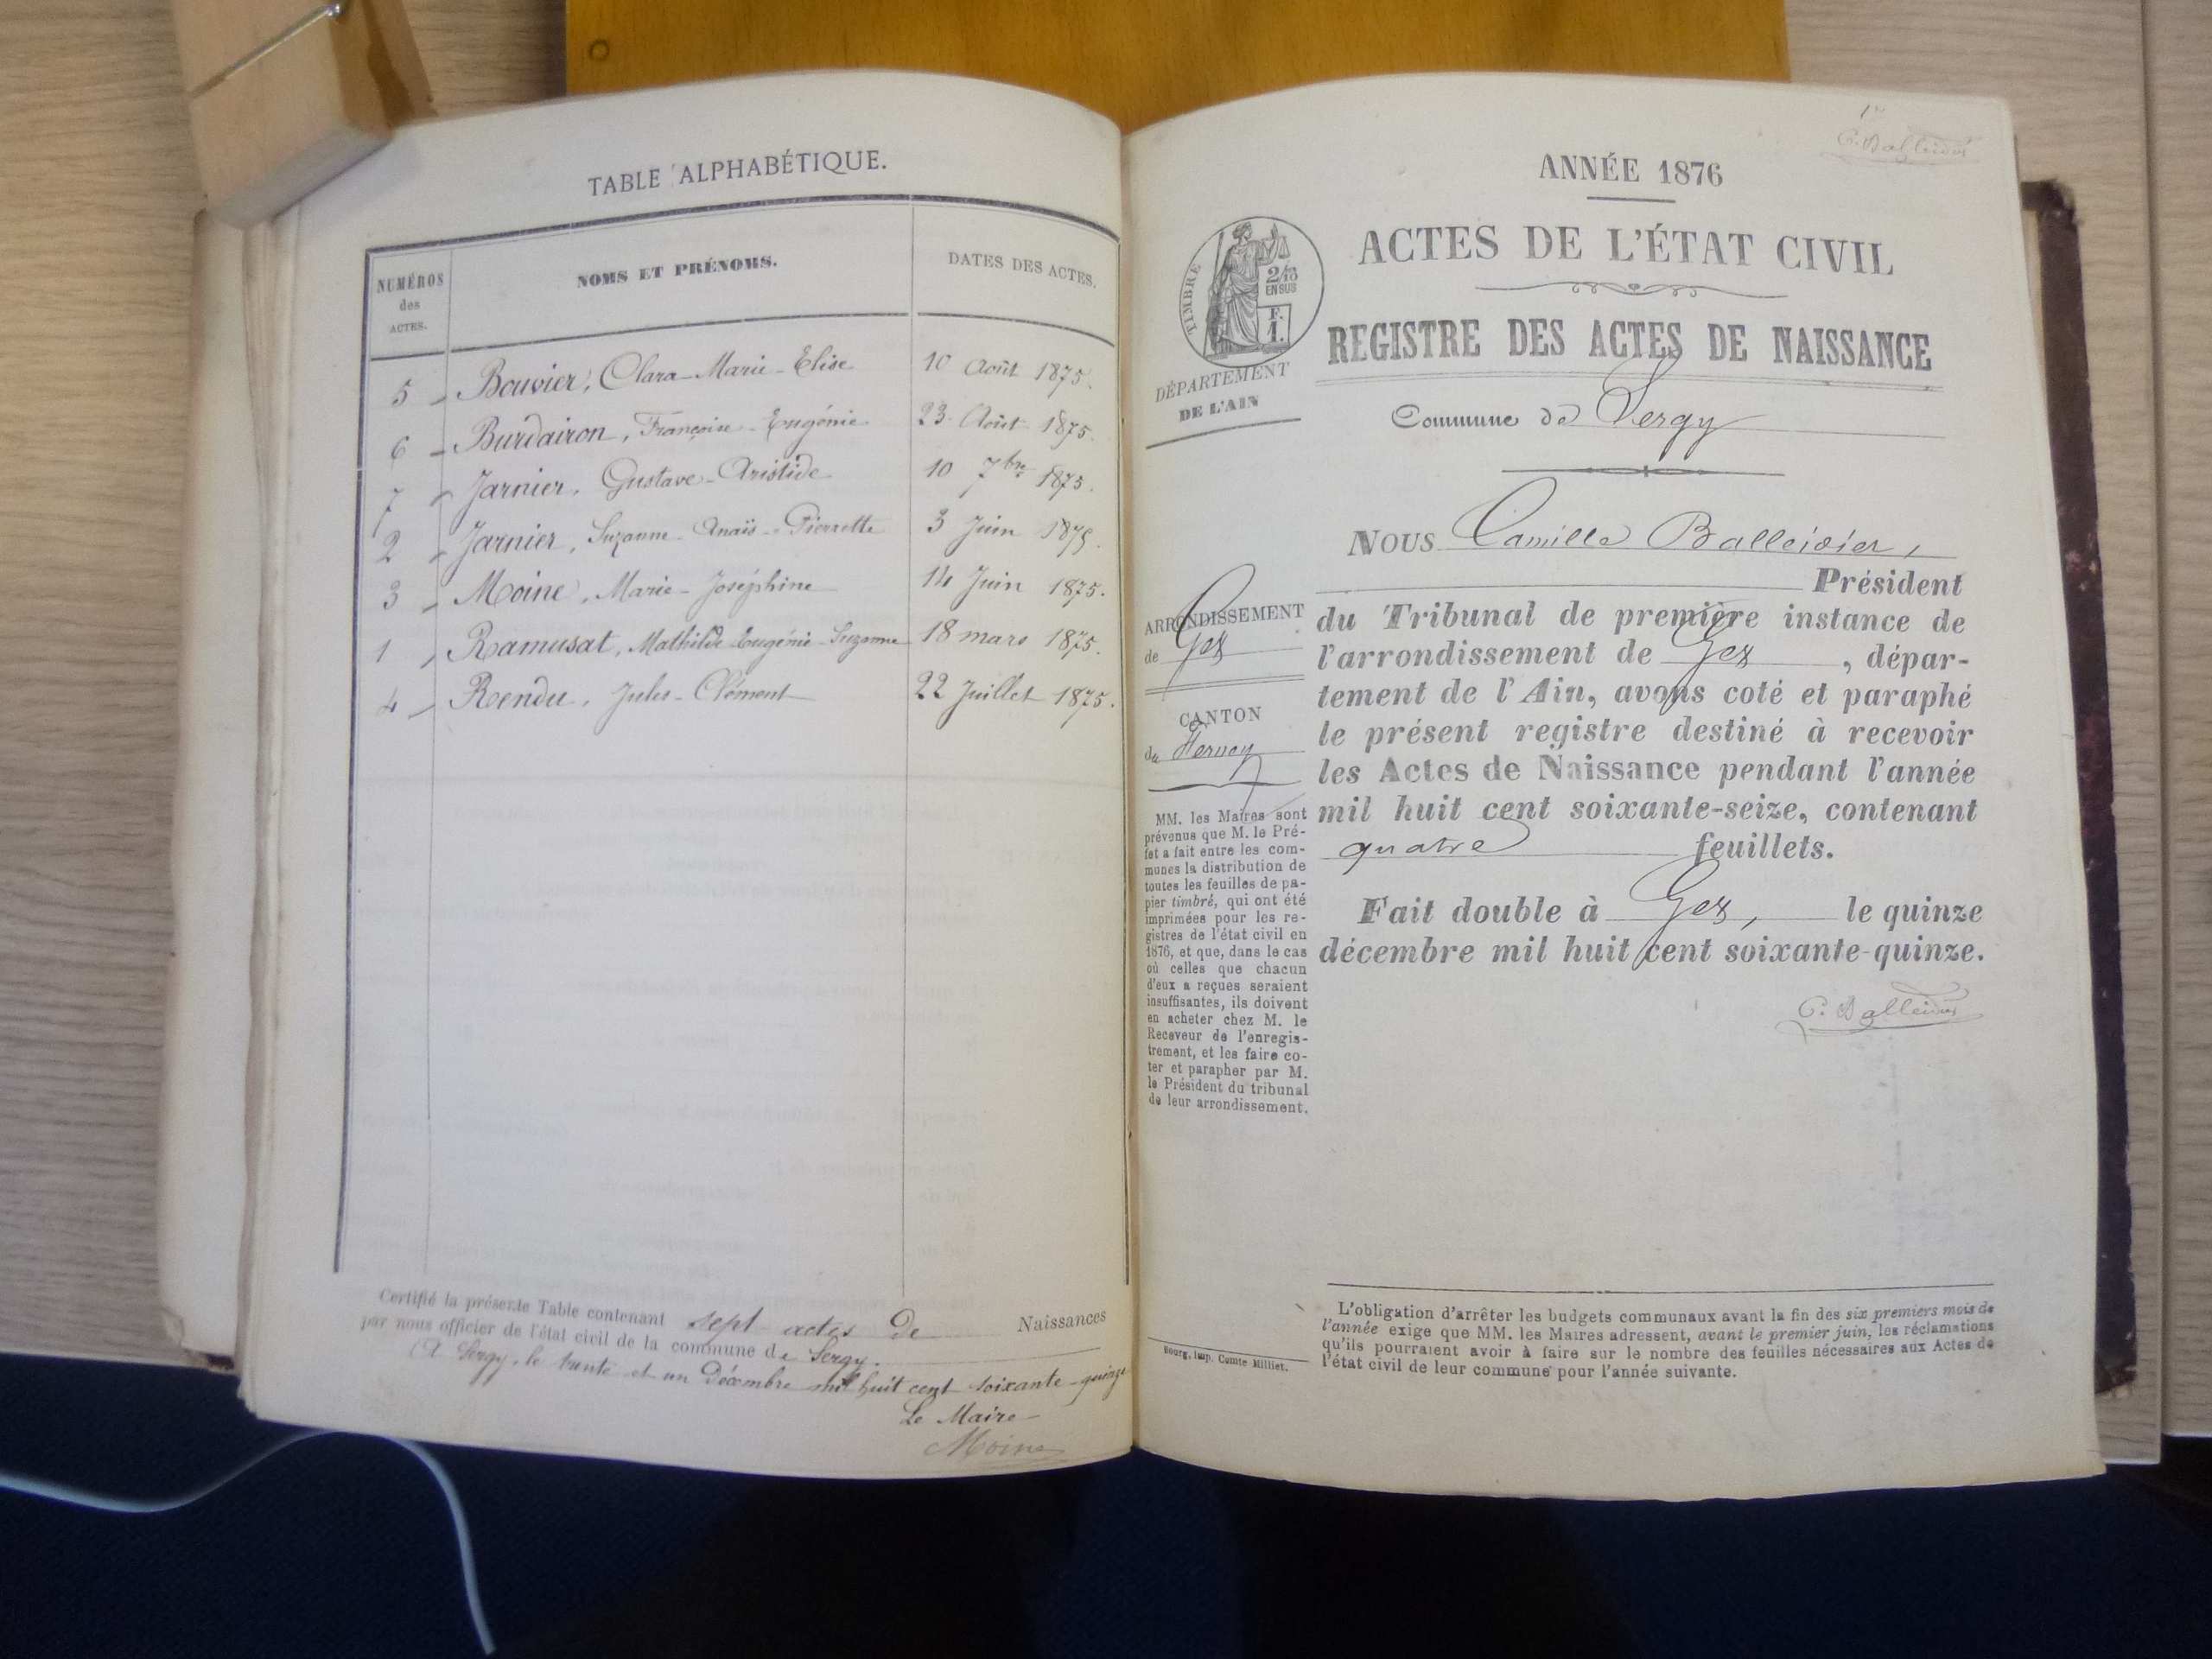 TABLE ALPHABÉTIQUE.
NUMÉROS
des
ACTES.
NOMS ET PRÉNOMS.
DATES DES ACTES.
5 Bouvier, Clara-Marie-Elise 10 Août 1875.
6 Burdairon, Françoise-Eugénie 23 Août 1875.
7 Jarnier, Gustave-Aristide 10 7bre 1875.
2 Jarnier, Suzanne-Anaïs-Pierrette 3 Juin 1875.
3 Moine, Marie-Joséphine 14 Juin 1875.
1 Ramusat, Mathilde-Eugénie-Suzanne 18 mars 1875.
4 Rendu, Jules-Clément 22 Juillet 1875.
Certifié la présente Table contenant sept actes de Naissances
par nous officier de l'état civil de la commune de Sergy.
A Sergy, le trente et un Décembre mil huit cent soixante-quinze
Le Maire
Moine
1er
C. Balleidier
ANNÉE 1876
ACTES DE L'ÉTAT CIVIL
REGISTRE DES ACTES DE NAISSANCE
TIMBRE
2/10
EN SUS
F.
1.
DÉPARTEMENT
DE L'AIN
Commune de Sergy
Nous Camille Balleidier,
Président
du Tribunal de première instance de
l'arrondissement de Gex, dépar-
tement de l'Ain, avons coté et paraphé
le présent registre destiné à recevoir
les Actes de Naissance pendant l'année
mil huit cent soixante-seize, contenant
quatre feuillets.
Fait double à Gex, le quinze
décembre mil huit cent soixante-quinze.
C. Balleidier
ARRONDISSEMENT
de Gex
CANTON
de Ferney
MM. les Maires sont
prévenus que M. le Pré-
fet a fait entre les com-
munes la distribution de
toutes les feuilles de pa-
pier timbré, qui ont été
imprimées pour les re-
gistres de l'état civil en
1876, et que, dans le cas
où celles que chacun
d'eux a reçues seraient
insuffisantes, ils doivent
en acheter chez M. le
Receveur de l'enregis-
trement, et les faire co-
ter et parapher par M.
le Président du tribunal
de leur arrondissement.
Bourg, imp. Comte Milliet.
L'obligation d'arrêter les budgets communaux avant la fin des six premiers mois de
l'année exige que MM. les Maires adressent, avant le premier juin, les réclamations
qu'ils pourraient avoir à faire sur le nombre des feuilles nécessaires aux Actes de
l'état civil de leur commune pour l'année suivante.